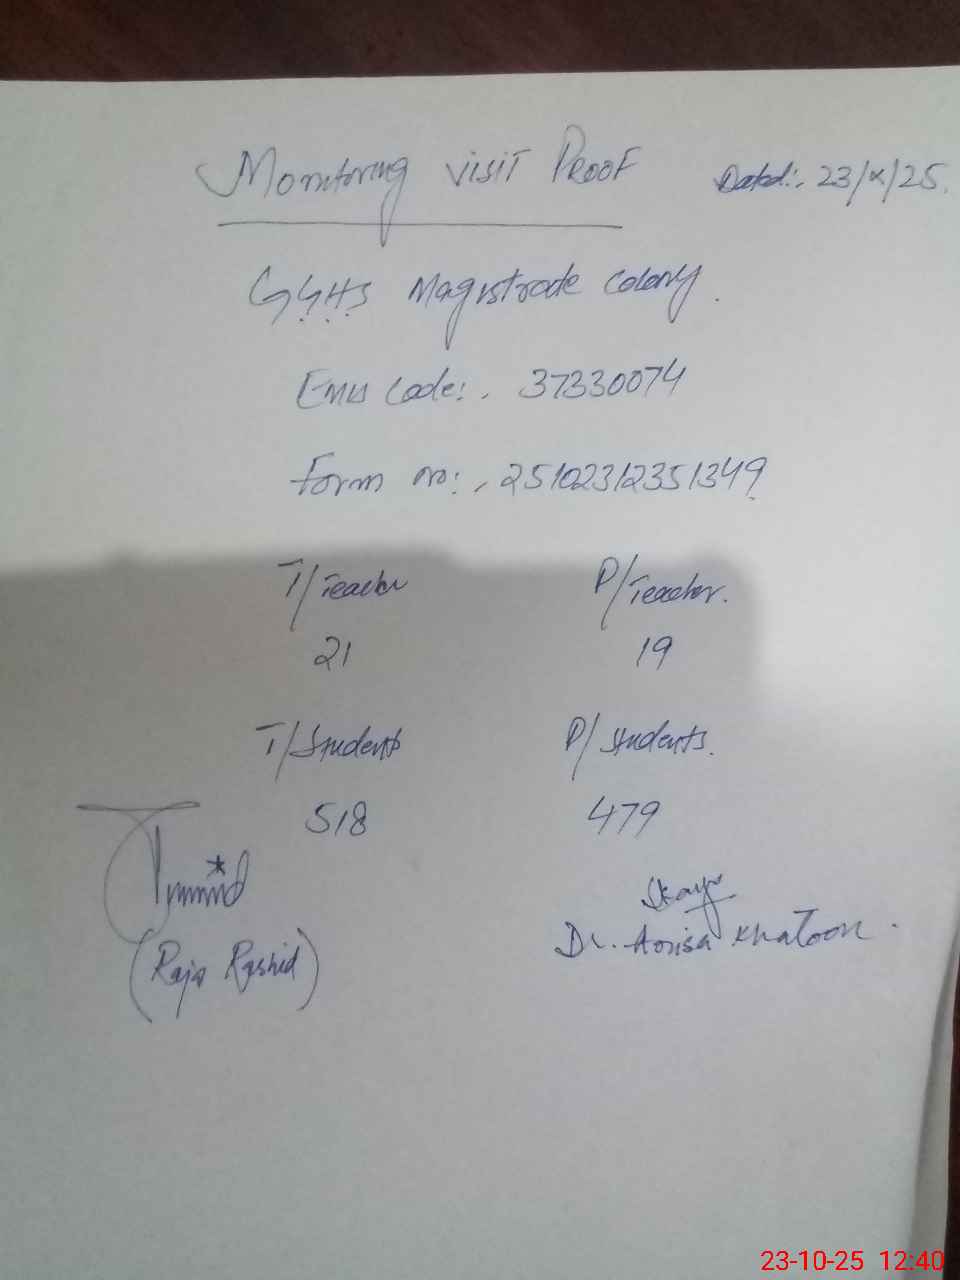 Monitoring visit Proof Dated:. 23/x/25.
GGHS Magistrade colony.
Emis Code:. 37330074
Form no:. 25102312351349
T/Teacher P/Teacher.
21 19
T/Students P/students.
518 479
(Raja Rashid) Dr. Anisa Khatoon.
23-10-25 12:40